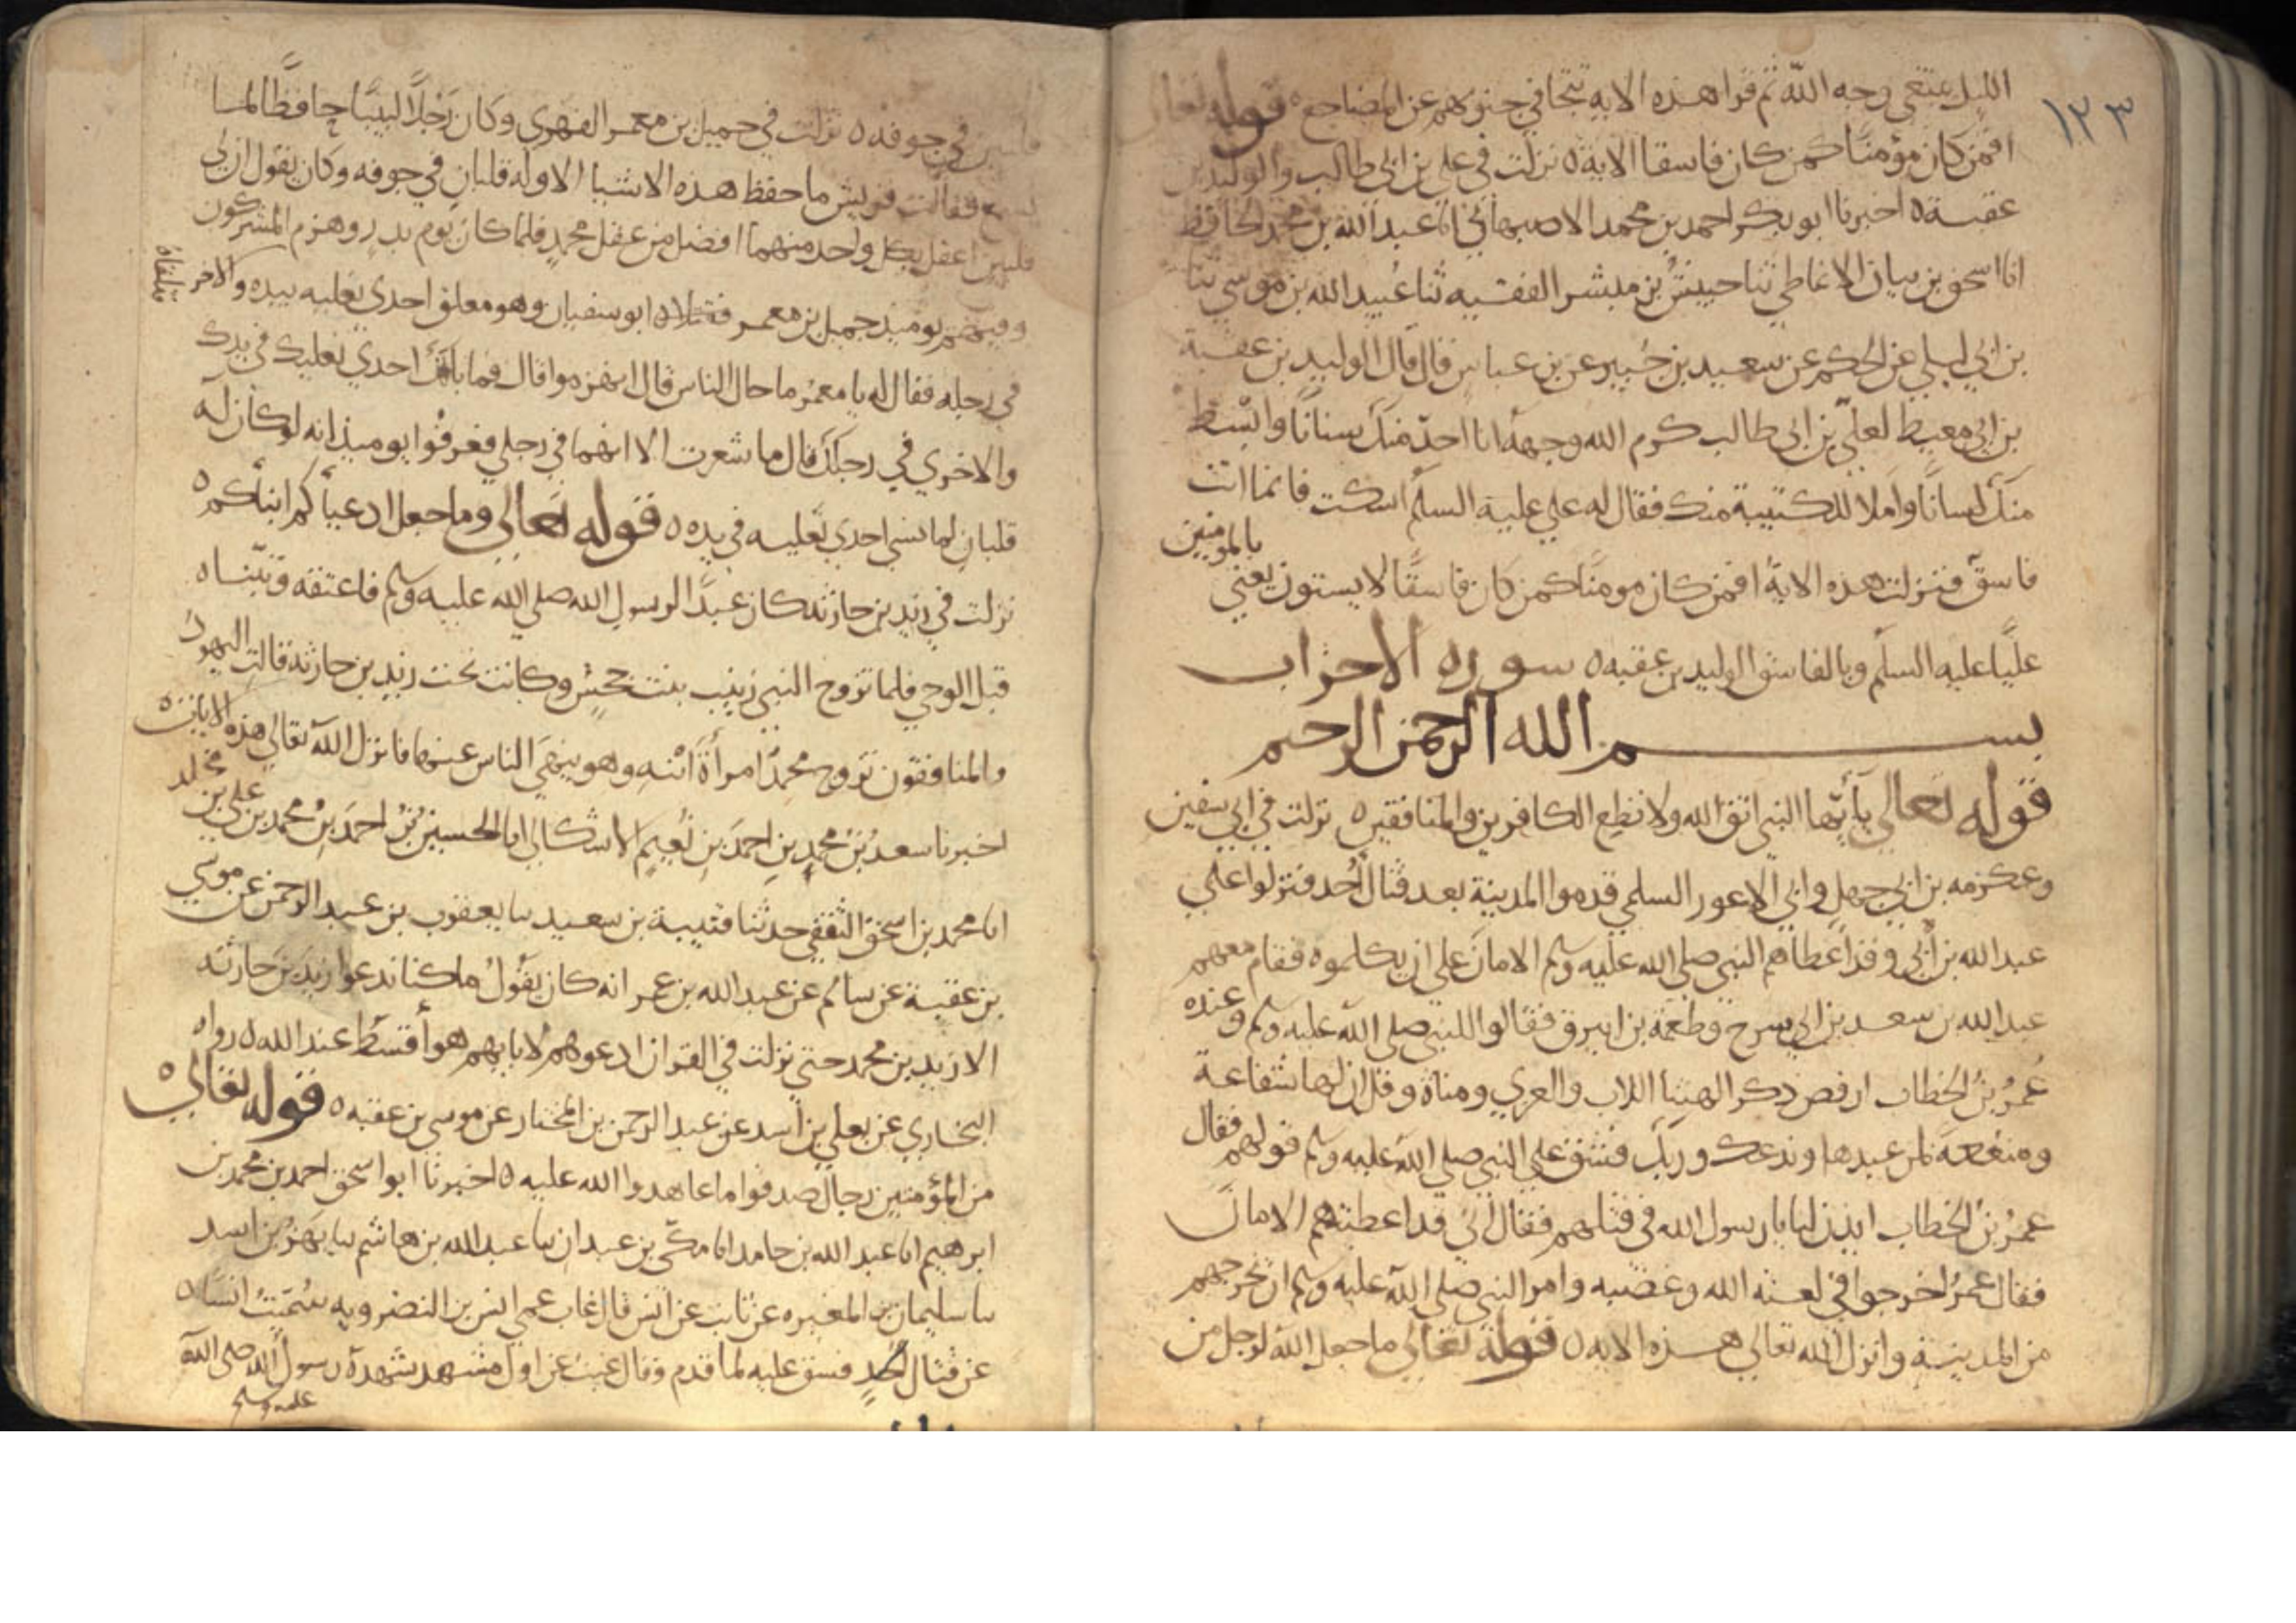 ١٢٣
الليل يبتغي وجه الله ثم قرا هذه الايه تتجافي جنوبهم عن المضاجع ٥ قوله تعالى
افمن كان مؤمنًا كمن كان فاسقا الاية ٥ نزلت في علي بن ابي طالب والوليد بن
عقبة ٥ اخبرنا ابو بكر احمد بن محمد الاصبهاني انا عبد الله بن محمد الحافظ
انا اسحق بن بيان الانماطي ثنا حبيش بن مبشر الفقيه ثنا عبيد الله بن موسي ثنا
بن ابي ليلي عن الحكم عن سعيد بن جبير عن بن عباس قال قال الوليد بن عقبة
بن ابي معيط لعلي بن ابي طالب كرم الله وجهه انا احدّ منك سنانًا وابسط
منك لسانًا واملا للكتيبة منك فقال له علي علية السلم اسكت فانما انت
فاسق فنزلت هذه الاية افمن كان مومنًا كمن كان فاسقًا لا يستوون يعني بالمومنين
عليًا عليه السلم وبالفاسق الوليد بن عقبه ٥ سورة الاحزاب
بسم الله الرحمن الرحيم
قوله تعالى يأيها النبي اتق الله ولا تطع الكافرين والمنافقين ٥ نزلت في ابي سفين
وعكرمه بن ابي جهل وابي الاعور السلمي قدموا المدينة بعد قتال أحد فنزلوا علي
عبد الله بن أبي وقد اعطاهم النبي صلى الله عليه وسلم الامان على ان يكلموه فقام معهم
عبد الله بن سعد بن ابي سرح وطعمة بن ابيرق فقالوا للنبي صلى الله عليه وسلم وعنده
عمر بن الخطاب ارفض ذكر الهتنا اللات والعزي ومناة وقل ان لها شفاعة
ومنفعة لمن عبدها وندعك وربك فشق علي النبي صلى الله عليه وسلم قولهم فقال
عمر بن الخطاب ايذن لنا يا رسول الله في قتلهم فقال اني قد اعطيتهم الامان
فقال عمر اخرجوا في لعنه الله وغضبه وامر النبي صلى الله عليه وسلم ان يخرجهم
من المدينة وانزل الله تعالي هذه الايه ٥ قوله تعالي ما جعل الله لرجل من
قلبين في جوفه ٥ نزلت في جميل بن معمر الفهري وكان رجلًا لبيبًا حافظًا لما
يسمع فقالت قريش ما حفظ هذه الاشيا الا وله قلبان في جوفه وكان يقول ان لي
قلبين اعقل بكل واحد منهما افضل من عقل محمد فلما كان يوم بدر وهزم المشركون
وفيهم يوميذ جميل بن معمر فتلاه ابو سفيان وهو معلق احدي نعليه بيده والاخر
تلقاه
في رجله فقال له يا معمر ما حال الناس قال انهزموا قال فما بالك احدي نعليك في يدك
والاخري في رجلك قال ما شعرت الا انهما في رجلي فعرفوا يوميذ انه لو كان له
قلبان لما نسي احدي نعليه في يده ٥ قوله تعالى وما جعل ادعياكم ابناكم ٥
نزلت في زيد بن حارثه كان عبدًا لرسول الله صلى الله عليه وسلم فاعتقه وتبنّاه
قبل الوحي فلما تزوج النبي زينب بنت جحش وكانت تحت زيد بن حارثة قالت اليهود
والمنافقون تزوج محمد امرأة ابنه وهو ينهي الناس عنها فانزل الله تعالي هذه الايات ٥
اخبرنا سعد بن محمد بن احمد بن نعيم الاشكابي انا الحسين بن احمد بن محمد بن علي بن مخلد
انا محمد بن اسحق الثقفي حدثنا قتيبة بن سعيد سا يعقوب بن عبد الرحمن عن موسي
بن عقبة عن سالم عن عبد الله بن عمر انه كان يقول ما كنا ندعوا زيد بن حارثه
الا زيد بن محمد حتي نزلت في القران ادعوهم لابايهم هو أقسط عند الله ٥ رواه
البخاري عن يعلي بن اسد عن عبد الرحمن بن المختار عن موسي بن عقبه ٥ قوله تعالى
من المؤمنين رجال صدقوا ما عاهدوا الله عليه ٥ اخبرنا ابو اسحق احمد بن محمد بن
ابرهيم انا عبد الله بن حامد انا مكي بن عبدان سا عبد الله بن هاشم سا بهز بن اسد
سا سليمان بن المغيره عن ثابت عن انس قال غاب عمي انس بن النضر وبه سميت انسًا ٥
عن قتال أحد فشق عليه لما قدم وقال غبت عن اول مشهد شهدة رسول الله صلى الله
عليه وسلم